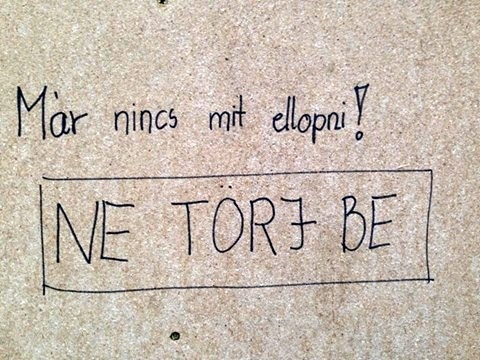 Már nincs mit ellopni!
NE TÖRJ BE